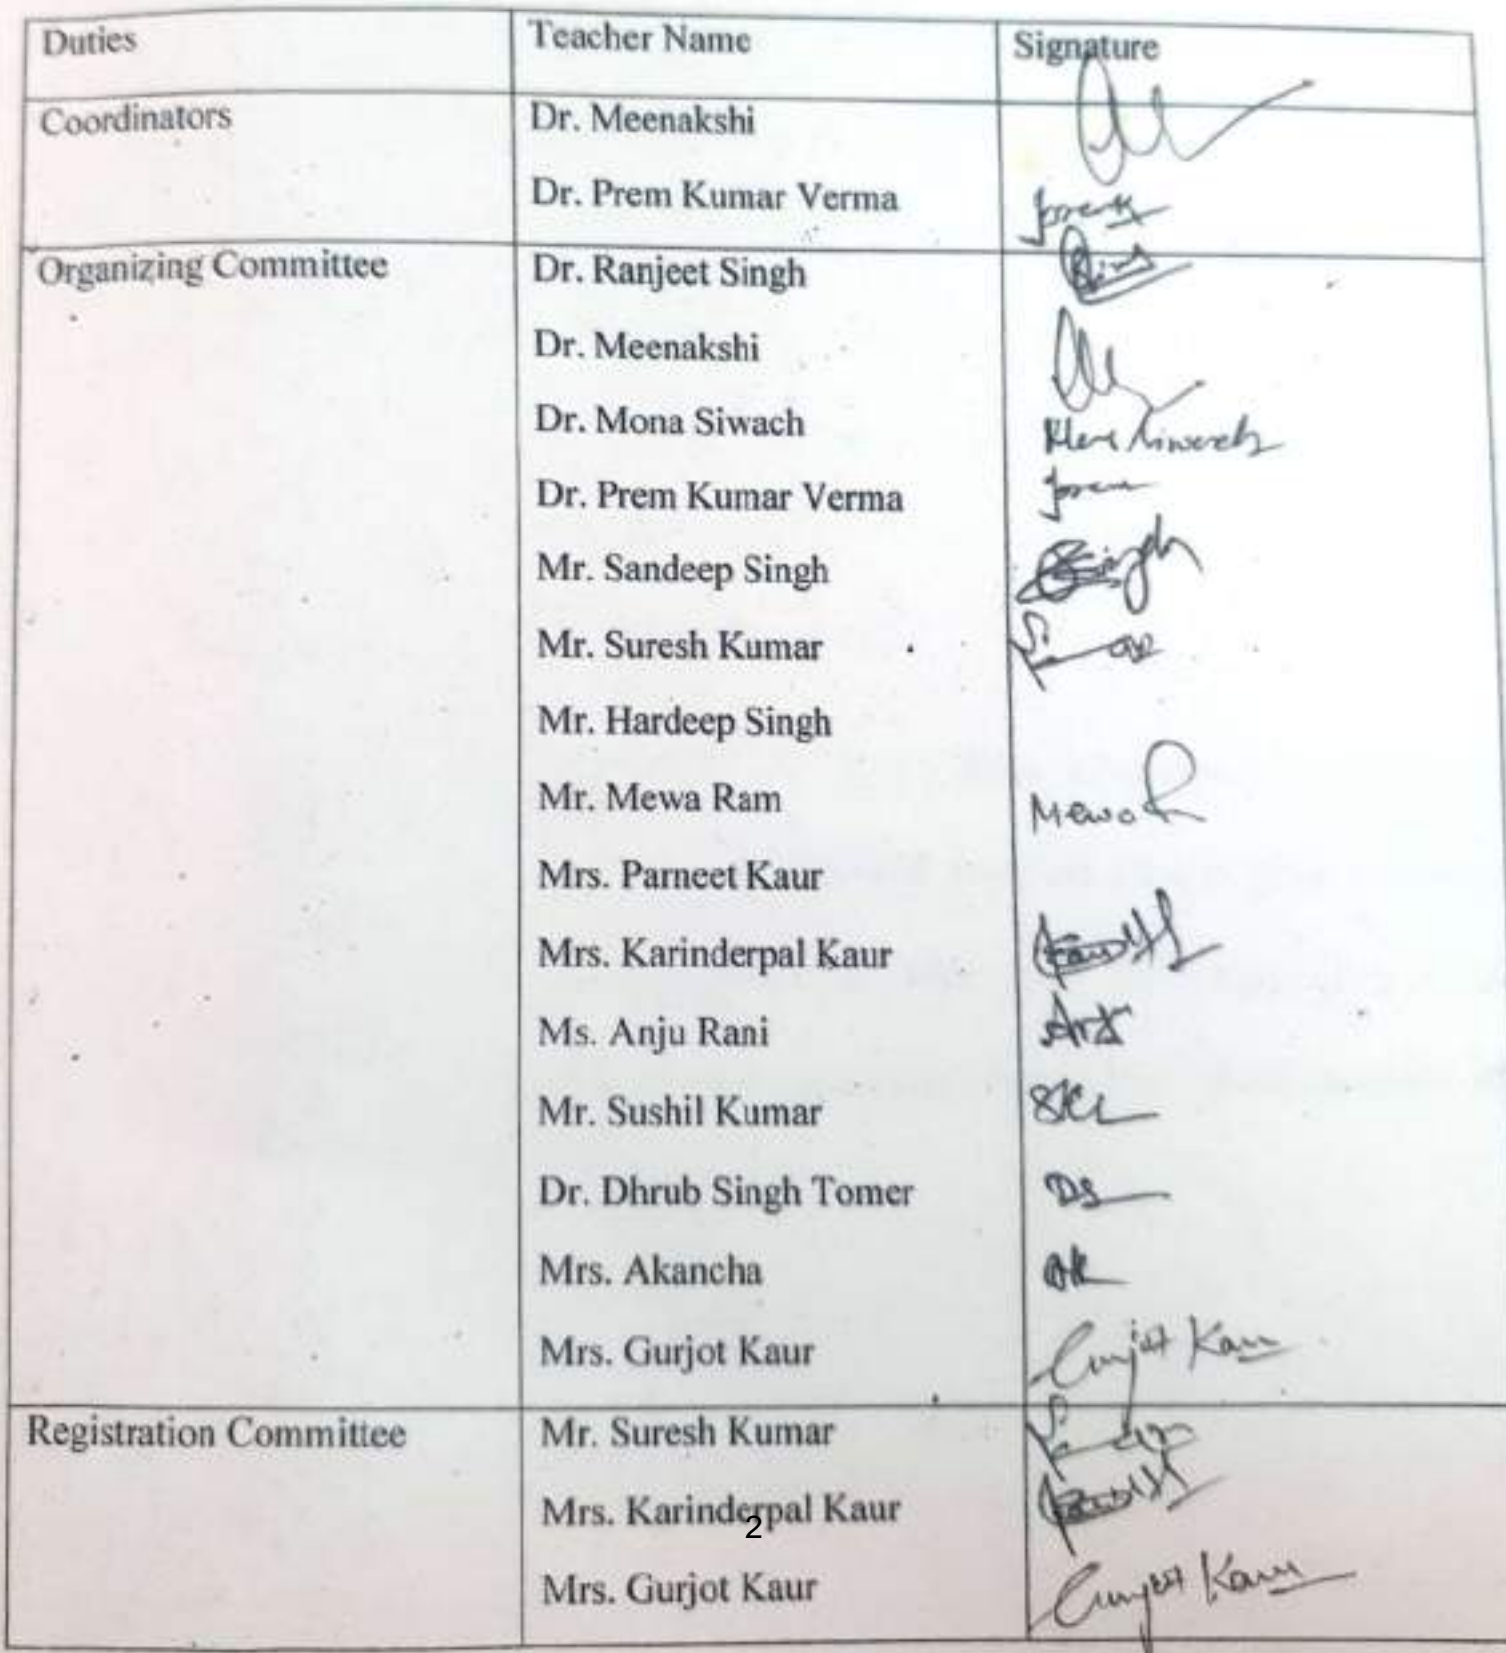 Duties Teacher Name Signature
Coordinators Dr. Meenakshi
Dr. Prem Kumar Verma Prem
Organizing Committee Dr. Ranjeet Singh
Dr. Meenakshi
Dr. Mona Siwach Mona Siwach
Dr. Prem Kumar Verma Prem
Mr. Sandeep Singh Singh
Mr. Suresh Kumar
Mr. Hardeep Singh
Mr. Mewa Ram Mewa R
Mrs. Parneet Kaur
Mrs. Karinderpal Kaur
Ms. Anju Rani
Mr. Sushil Kumar
Dr. Dhrub Singh Tomer DS
Mrs. Akancha AK
Mrs. Gurjot Kaur Gurjot Kaur
Registration Committee Mr. Suresh Kumar
Mrs. Karinderpal Kaur
2
Mrs. Gurjot Kaur Gurjot Kaur